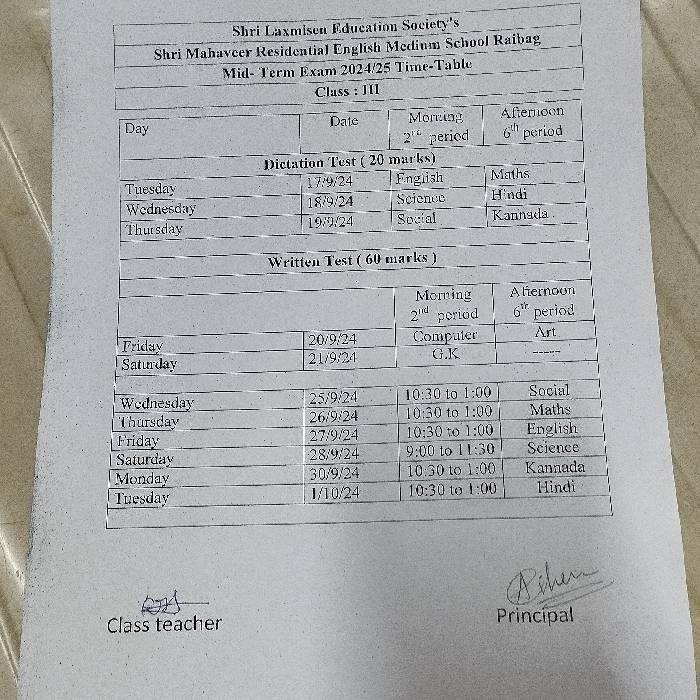 Shri Laxmisen Education Society's
Shri Mahaveer Residential English Medium School Raibag
Mid- Term Exam 2024/25 Time-Table
Class : III
Day Date Morning 2nd period Afternoon 6th period
Dictation Test ( 20 marks)
Tuesday 17/9/24 English Maths
Wednesday 18/9/24 Science Hindi
Thursday 19/9/24 Social Kannada
Written Test ( 60 marks )
Morning 2nd period Afternoon 6th period
Friday 20/9/24 Computer Art
Saturday 21/9/24 G.K -----
Wednesday 25/9/24 10:30 to 1:00 Social
Thursday 26/9/24 10:30 to 1:00 Maths
Friday 27/9/24 10:30 to 1:00 English
Saturday 28/9/24 9:00 to 11:30 Science
Monday 30/9/24 10:30 to 1:00 Kannada
Tuesday 1/10/24 10:30 to 1:00 Hindi
Class teacher Principal